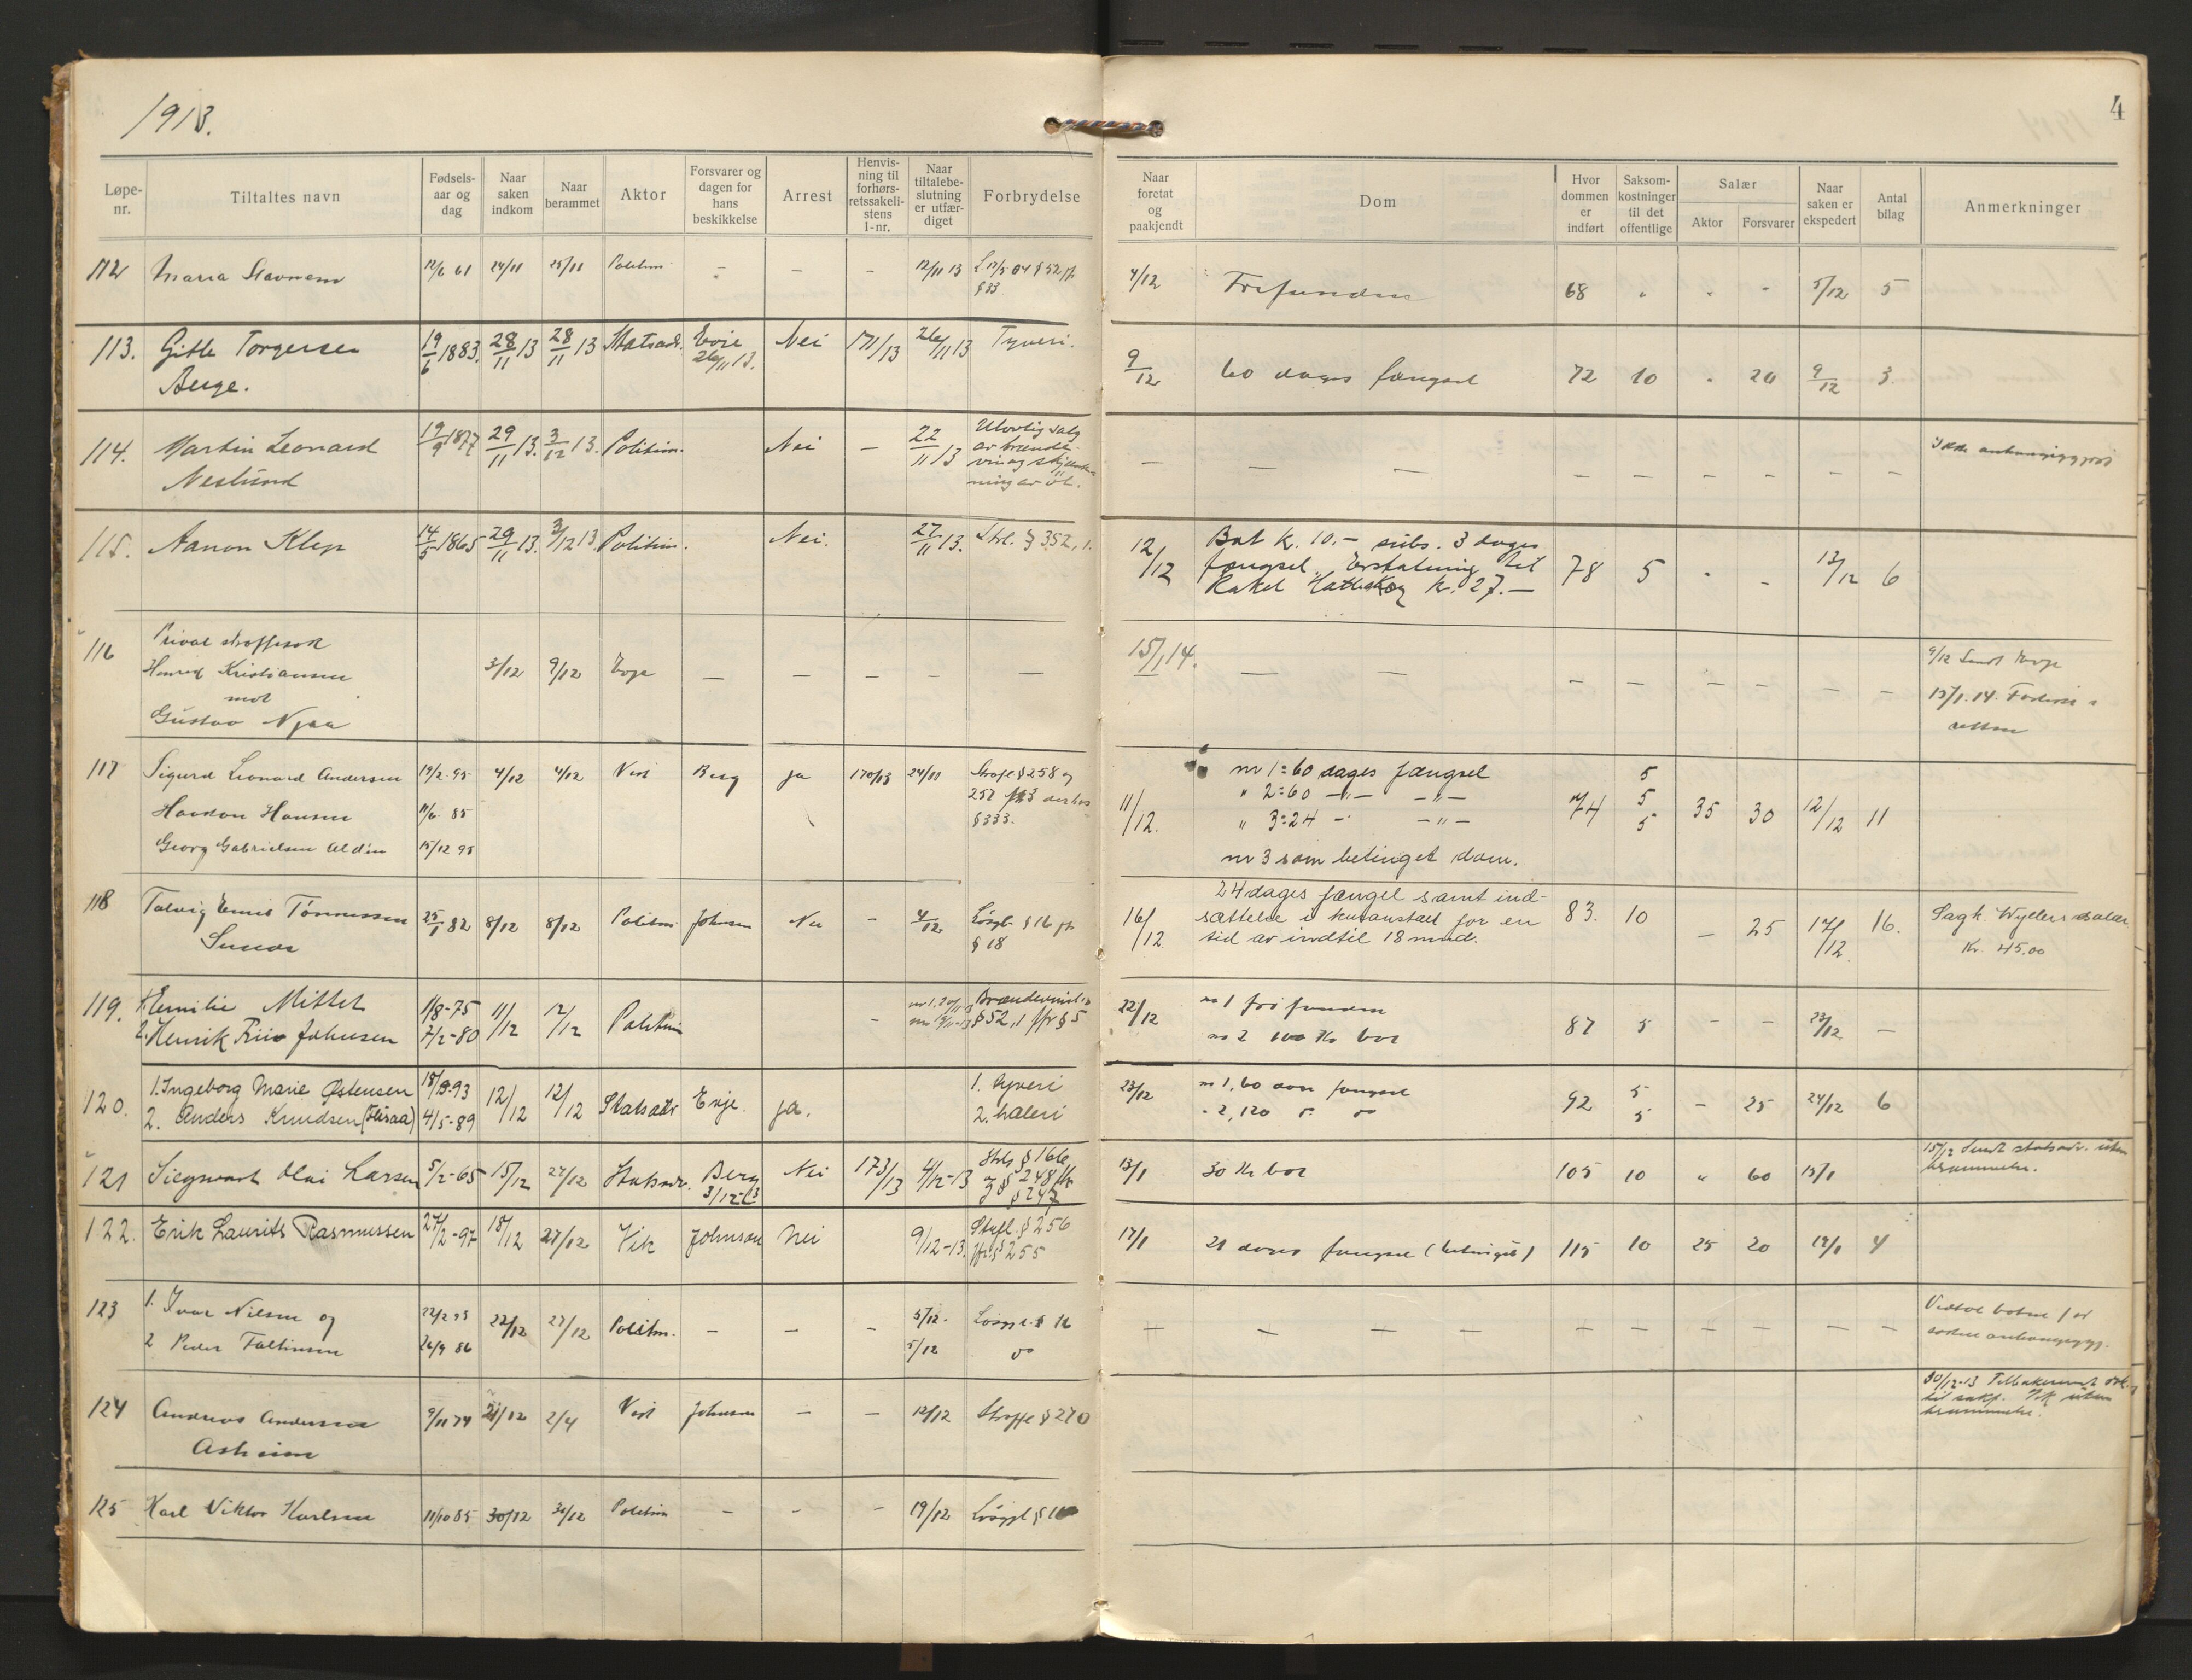 1913.
4
Løpe-nr.
Tiltaltes navn
Fødsels-aar og dag
Naar saken indkom
Naar berammet
Aktor
Forsvarer og dagen for hans beskikkelse
Arrest
Henvis-ning til forhørs-retssakeli-stens l-nr.
Naar tiltalebe-slutning er utfær-diget
Forbrydelse
Naar foretat og paakjendt
Dom
Hvor dommen er indført
Saksom-kostninger til det offentlige
Salær
Aktor
Forsvarer
Naar saken er ekspedert
Antal bilag
Anmerkninger
112 Maria 12/6 61 24/11 25/11 Politim. - - - 12/11 13 § 52 jfr.
§ 33
4/12 Frifunden 68 " " - 5/12 5
113. Gitle Torgersen 19/6 1883. 28/11 13 28/11 13 Statsadv. Evje Nei 171/13 26/11 13 Tyveri.
Berge. 26/11 13.
9/12 60 dages fængsel 72 10 " 20 9/12 3
114. Martin Leonard 19/9 1877 29/11 13. 3/12 13. Politim. Nei — 22/11 13 Ulovlig salg
Neslund av brænde-
vin og skjænk-
ning av øl.
— — — — — — — — —
115. Aanon Klep 14/5 1865 29/11 13. 3/12 13 Politim. Nei. 27/11 13. Strl. § 352, 1.
12/12 Bøt kr. 10.- subs. 3 dages
fængsel. Erstatning til
Rakel kr. 27.—
78 5 " - 13/12 6
116 Privat straffesak
Kristiansen 3/12 9/12 Evje — — — — —
mot
Gustav Njaa
15/1 14. — — — — — — — — —
9/12 Sendt Evje
15/1. 14. Forlikt i
retten
117 Sigurd Leonard Andersen 19/2 95 4/12 4/12 Berg ja 170/13 24/11 § 258 og
Haakon Hansen 11/6 85 257 jfr. derhos
Georg Gabrielsen 15/12 95 § 333.
11/12. nr 1: 60 dages fængsel 5
" 2: 60 -"- -"- 5
" 3: 24 -"- -"- 5
nr 3 som betinget dom.
74 35 30 12/12 11
118 Tønnessen 25/1 82 8/12 8/12 Politim. Johnsen Nei - 4/12 Løsgl. § 16 jfr.
§ 18
16/12. 24 dages fængsel samt ind-
sættelse i kuranstalt for en
tid av indtil 18 mnd.
83. 10 — 25 17/12. 16. Sagk. Wyllers salær
Kr. 45.00
119. 1. Emilie Mittet 1/8-75 11/12 12/12 Politim - Brændevinsl.
2. Henrik Johnsen 7/2-80 § 52, 1 jfr § 5
22/12 no 1 frifunden
no 2 100 Kr bot
87 5 - - 23/12 —
120. 1. Ingeborg Marie Østensen 18/9-93 12/12 12/12 Statsadv Evje. ja. 1. tyveri
2. Anders Knudsen 4/5-89 2. hæleri
23/12 no 1, 60 fængsel 5
" 2, 120 5
92 - 25 24/12 6
121 Siegwart Olai Larsen 5/2-65 15/12 27/12 Statsadv. Berg Nei 173/13 4/12-13 Strl § 166
3/12-13 § 248 jfr
§ 247
13/1 30 Kr bot 105 10 " 60 15/1
15/12 Sendt statsadv. uten
berammelse.
122. Erik Laurits Rasmussen 27/2-97 18/12 27/12 Vik Johnson Nei 9/12-13. Strfl. § 256
jfr. § 255
17/1 21 dages fængsel (betinget) 115 10 25 20 19/1 4
123 1. Ivar Nilsen og 22/2 93 22/12 27/12 Politm. — — - 5/12. Løsgjl. § 16
2 Peder Faltinsen 26/9 86 5/12 do
— — — — — — — — — — —
Vedtok boten før
124 Andreas Andersen 9/11 74 21/12 2/4 Johnsen — - 12/12 Straffl § 270
Asheim
30/12-13
uten
berammelse.
125 Karl Viktor Karlsen 11/10 85 30/12 30/12 Politim - - - 19/12 Løsgjl § 16